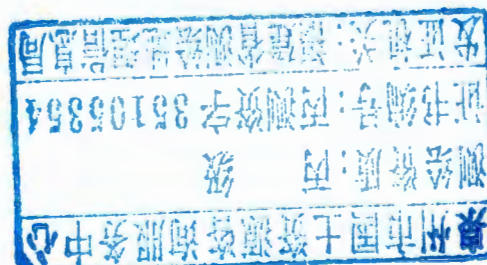 泉州市国土资源咨询服务中心
测绘资质:丙 级
证书编号:丙测资字 35105354
发证机关:福建省测绘地理信息局